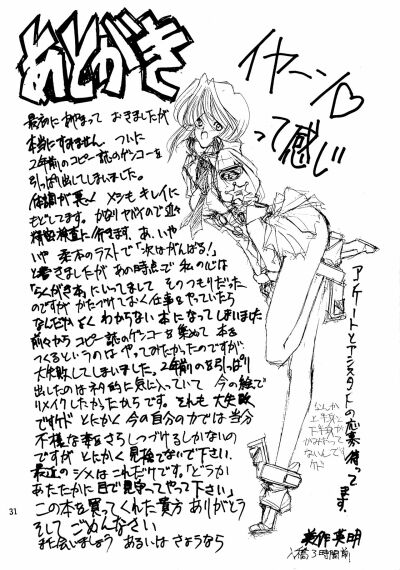 あとがき
イヤーン♡
って感じ
最初にあやまって おきましたが
本当にすみません。ついに
2年前のコピー誌のゲンコーを
引っぱり出してしまいました。
体調が悪く メシもキレイに
もどしてます。かなりヤバイので近々
精密検査に行きます。あ、いや
いや 本のラストで「次はがんばる!」
と書きましたが あの時点で 私の心は
「らくがき本」にいってまして そのつもりだった
のですが かたづけておく仕事をやっていたら
なんだかよく わからない 本になってしまいました
前々から コピー誌のゲンコーを集めて 本を
つくるというのは やってみたかったのですが
大失敗してしまいました。2年前のを引っぱり
出したのは ネタ的に気に入っていて 今の絵で
リメイクしたかったからです。それも 大失敗
ですけど とにかく 今の自分の力では 当分
不様な本をさらしつづけるしかないの
ですが とにかく 見捨てないで下さい。
最近のシメはこれだけです。「どうか
あたたかい目で見守ってやって下さい」
この本を買ってくれた貴方 ありがとう
そして ごめんなさい
また会いましょう あるいは さようなら
アンケートとアシスタントの応募待ってます。
なんか
上半身と
下半身が
かみあって
ないんでし
けど
美作英明
入稿3時間前
31